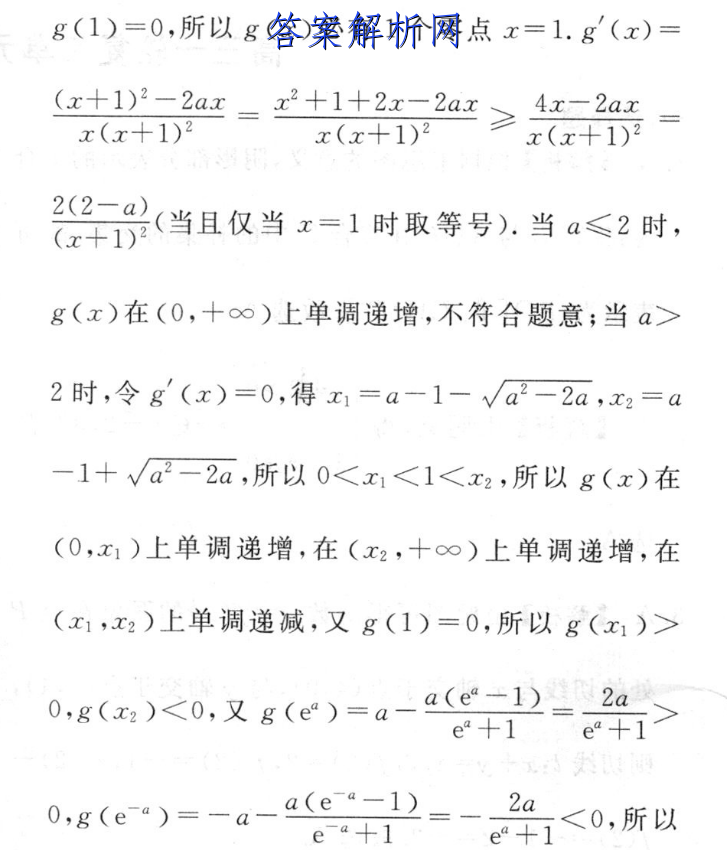 g(1)=0,所以 g(x)必有1个零点 x=1. g′(x)=
答案解析网
\frac{(x+1)²-2ax}{x(x+1)²} = \frac{x²+1+2x-2ax}{x(x+1)²} ⩾ \frac{4x-2ax}{x(x+1)²} =
\frac{2(2-a)}{(x+1)²}(当且仅当 x=1 时取等号). 当 a⩽2 时,
g(x)在(0,+∞)上单调递增,不符合题意;当 a>
2时,令 g′(x)=0,得 x₁=a-1-√(a²-2a),x₂=a
-1+√(a²-2a),所以 0<x₁<1<x₂,所以 g(x)在
(0,x₁)上单调递增,在(x₂,+∞)上单调递增,在
(x₁,x₂)上单调递减,又 g(1)=0,所以 g(x₁)>
0,g(x₂)<0,又 g(eᵃ)=a-\frac{a(eᵃ-1)}{eᵃ+1}=\frac{2a}{eᵃ+1}>
0,g(e⁻ᵃ)=-a-\frac{a(e⁻ᵃ-1)}{e⁻ᵃ+1}=-\frac{2a}{eᵃ+1}<0,所以